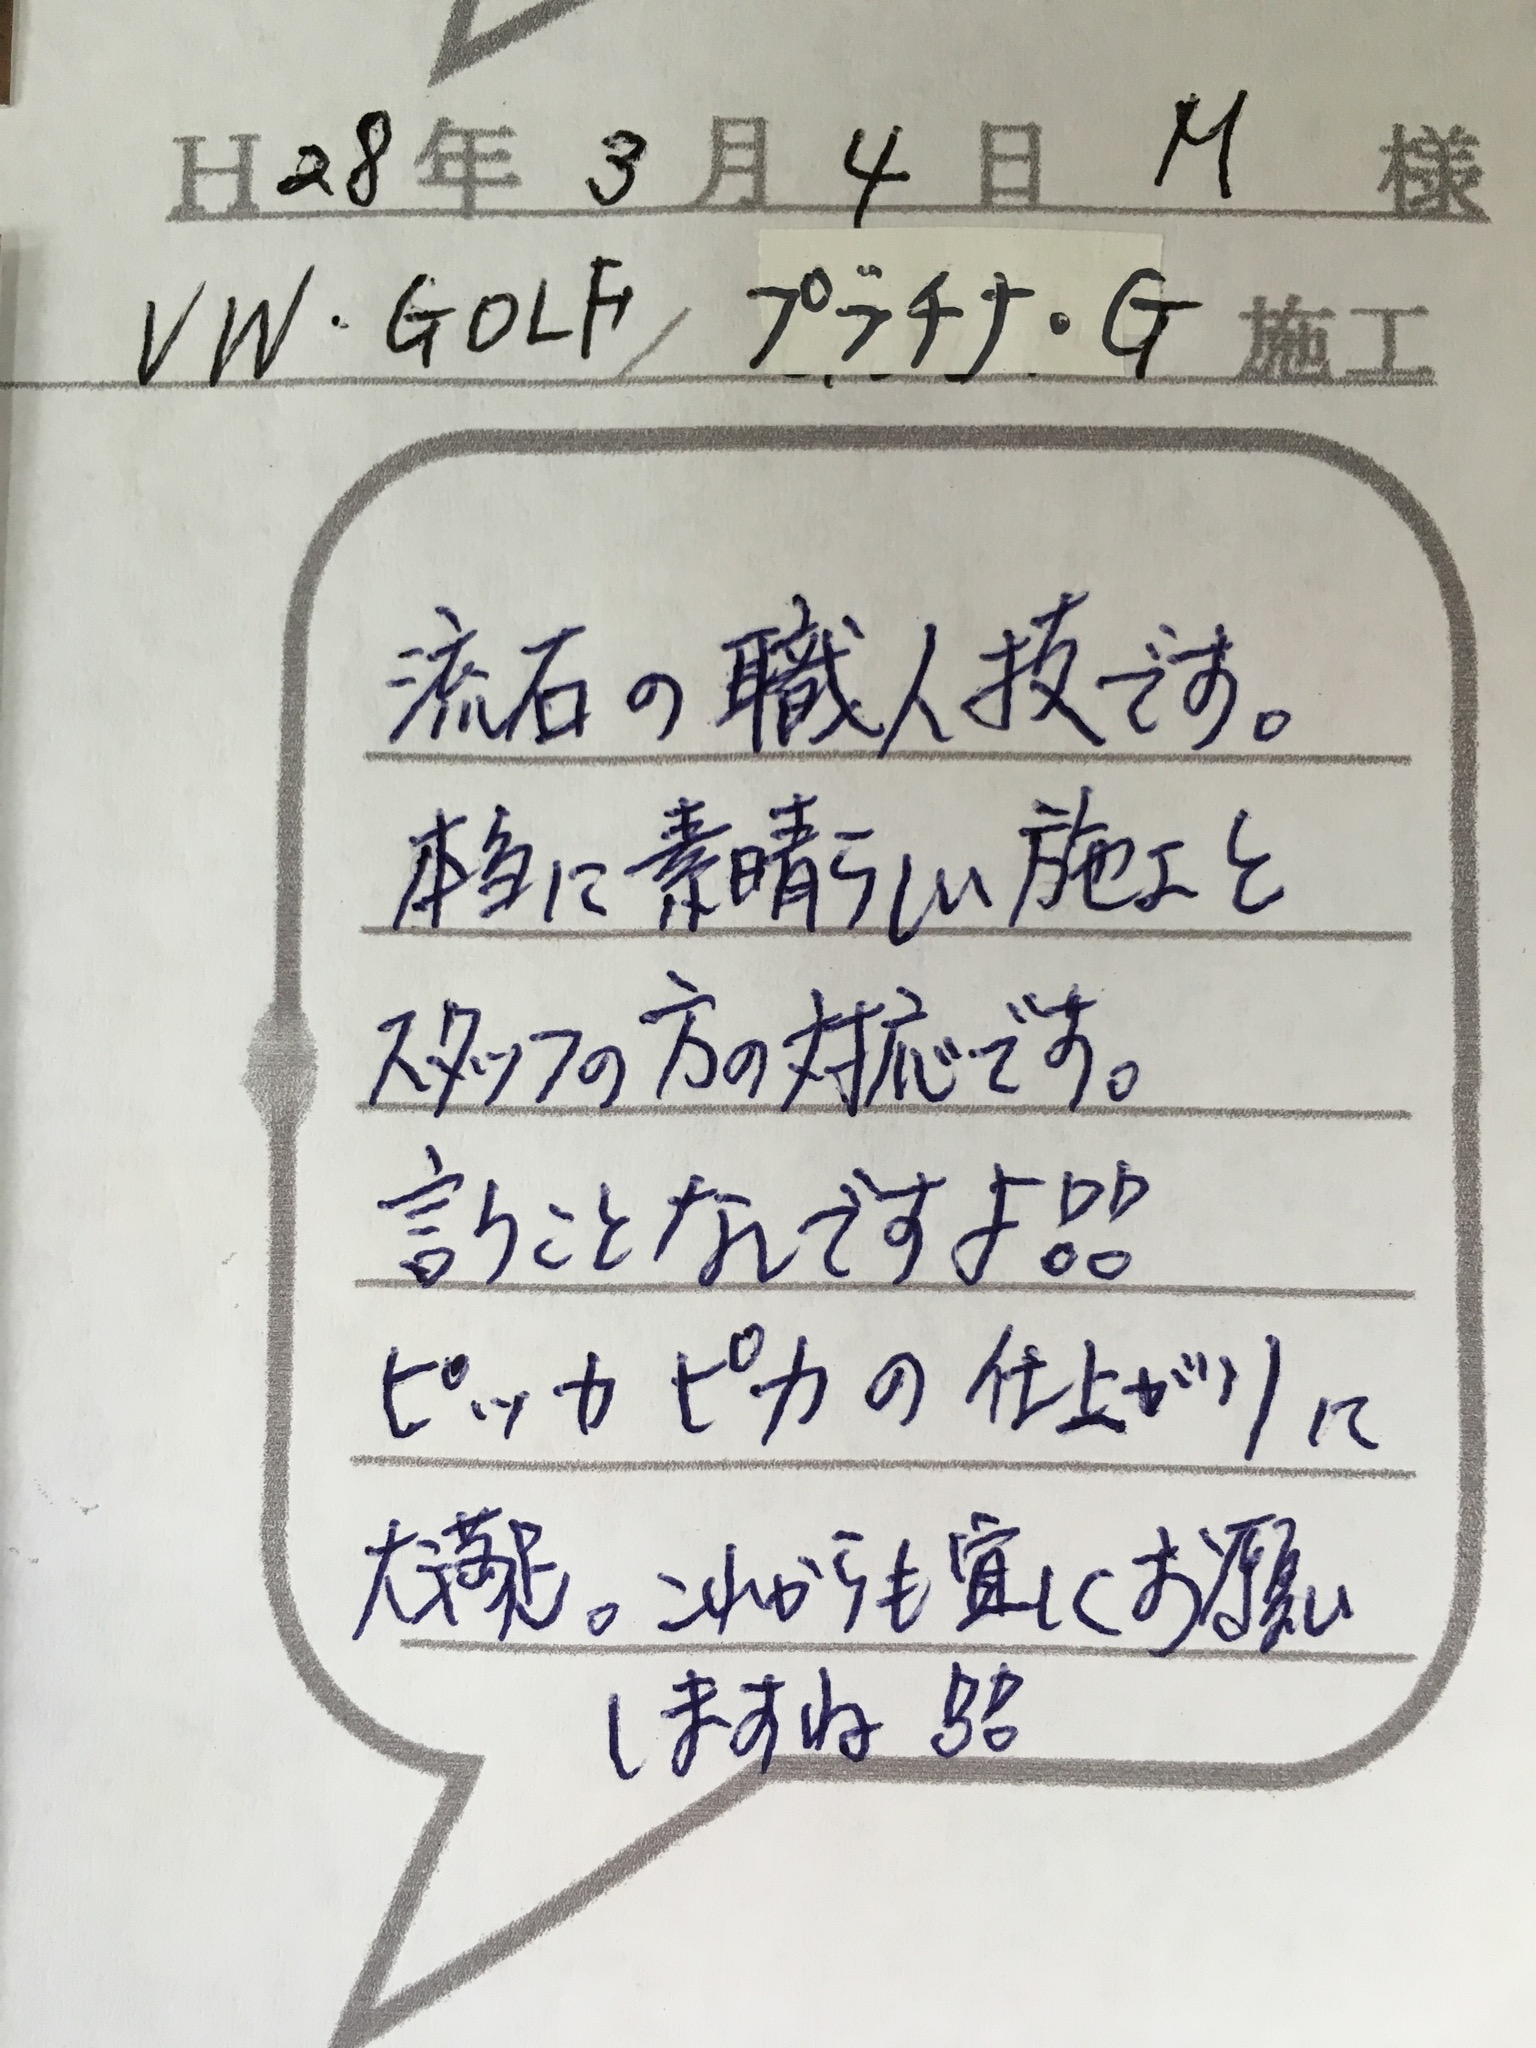 H28年 3月 4日 M 様
VW・GOLF/プラチナ・G 施工
流石の職人技です。
本当に素晴らしい施工と
スタッフの方の対応です。
言うことなしですよ!!
ピッカピカの仕上がりに
大満足。これからも宜しくお願い
しますね!!